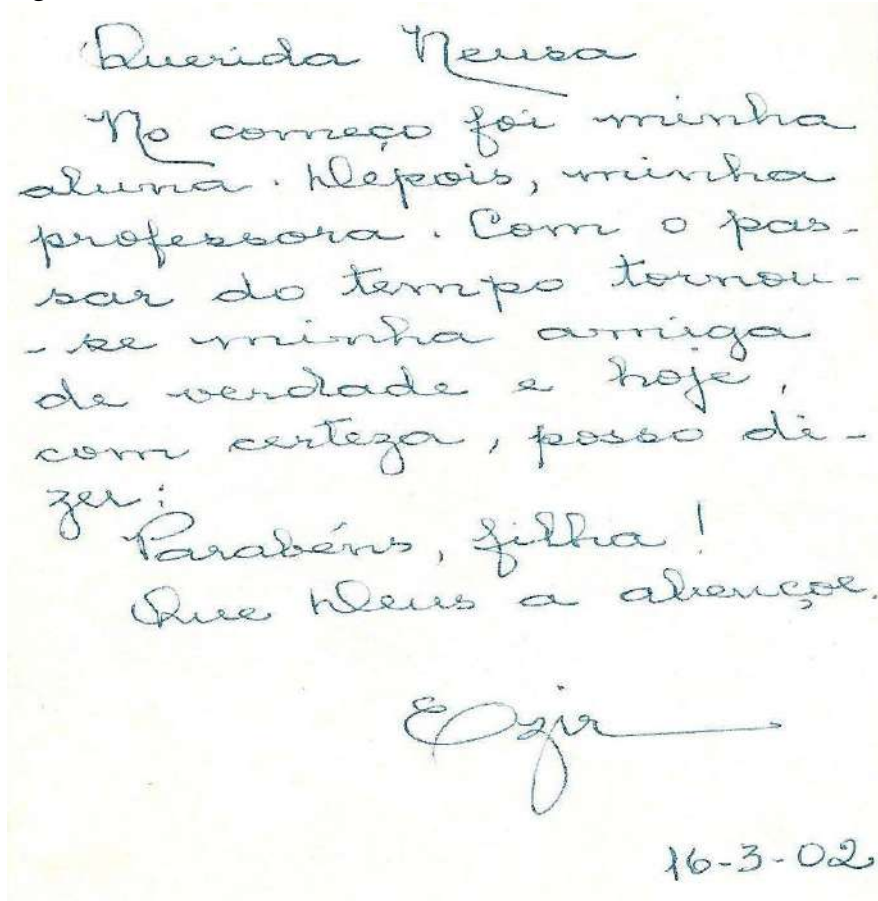 Querida Neusa
No começo foi minha
aluna. Depois, minha
professora. Com o pas-
sar do tempo tornou-
-se minha amiga
de verdade e hoje,
com certeza, posso di-
zer:
Parabéns, filha!
Que Deus a abençoe.
16-3-02